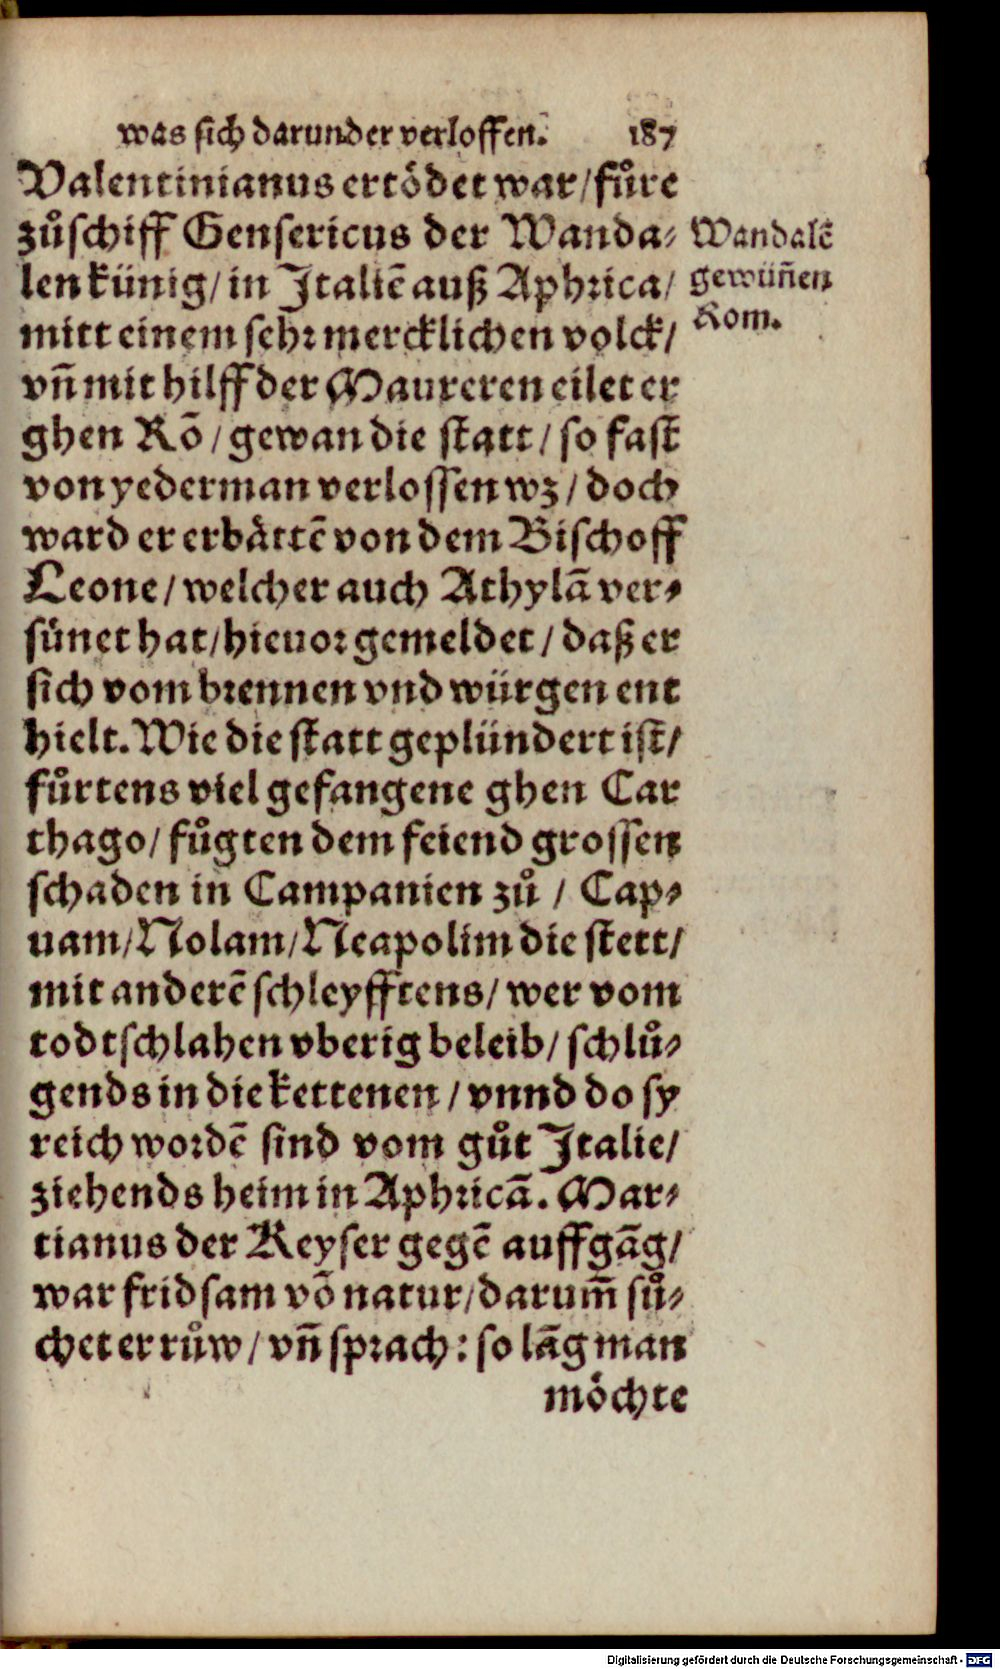 was sich darunder verloffen. 187
Valentinianus ertödet war/fůre
zůschiff Gensericus der Wanda⸗
len künig/in Italiē auß Aphrica/
mitt einem sehr mercklichen volck/
vn̄ mit hilff der Maureren eilet er
ghen Rō/gewan die statt/so fast
von yederman verlossen wz/doch
ward er erbättē von dem Bischoff
Leone/welcher auch Athylā ver⸗
sünet hat/hieuor gemeldet/daß er
sich vom brennen vnd würgen ent
hielt. Wie die statt geplündert ist/
fůrtens viel gefangene ghen Car
thago/fůgten dem feiend grossen
schaden in Campanien zů/Cap⸗
uam/Nolam/Neapolim die stett/
mit anderē schleyfftens/wer vom
todtschlahen vberig beleib/schlů⸗
gends in die kettenen/vnnd do sy
reich wordē sind vom gůt Italie/
ziehends heim in Aphricā. Mar⸗
tianus der Keyser gegē auffgāg/
war fridsam vō natur/darum̄ sů⸗
chet er růw/vn̄ sprach: so lāg man
möchte
Wandalē
gewün̄en
Rom.
Digitalisierung gefördert durch die Deutsche Forschungsgemeinschaft - DFG